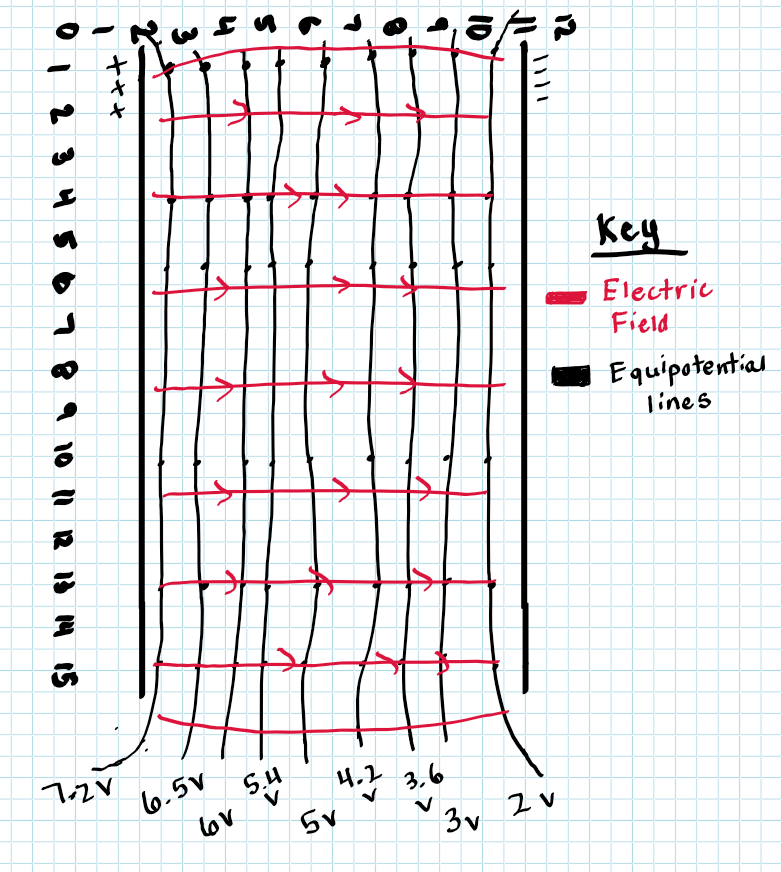 0 1 2 3 4 5 6 7 8 9 10 11 12
1
2
3
4
5
6
7
8
9
10
11
12
13
14
15
+
+
+
-
-
-
-
Key
Electric
Field
Equipotential
lines
7.2v
6.5v
6v
5.4
v
5v
4.2
v
3.6
v
3v
2v